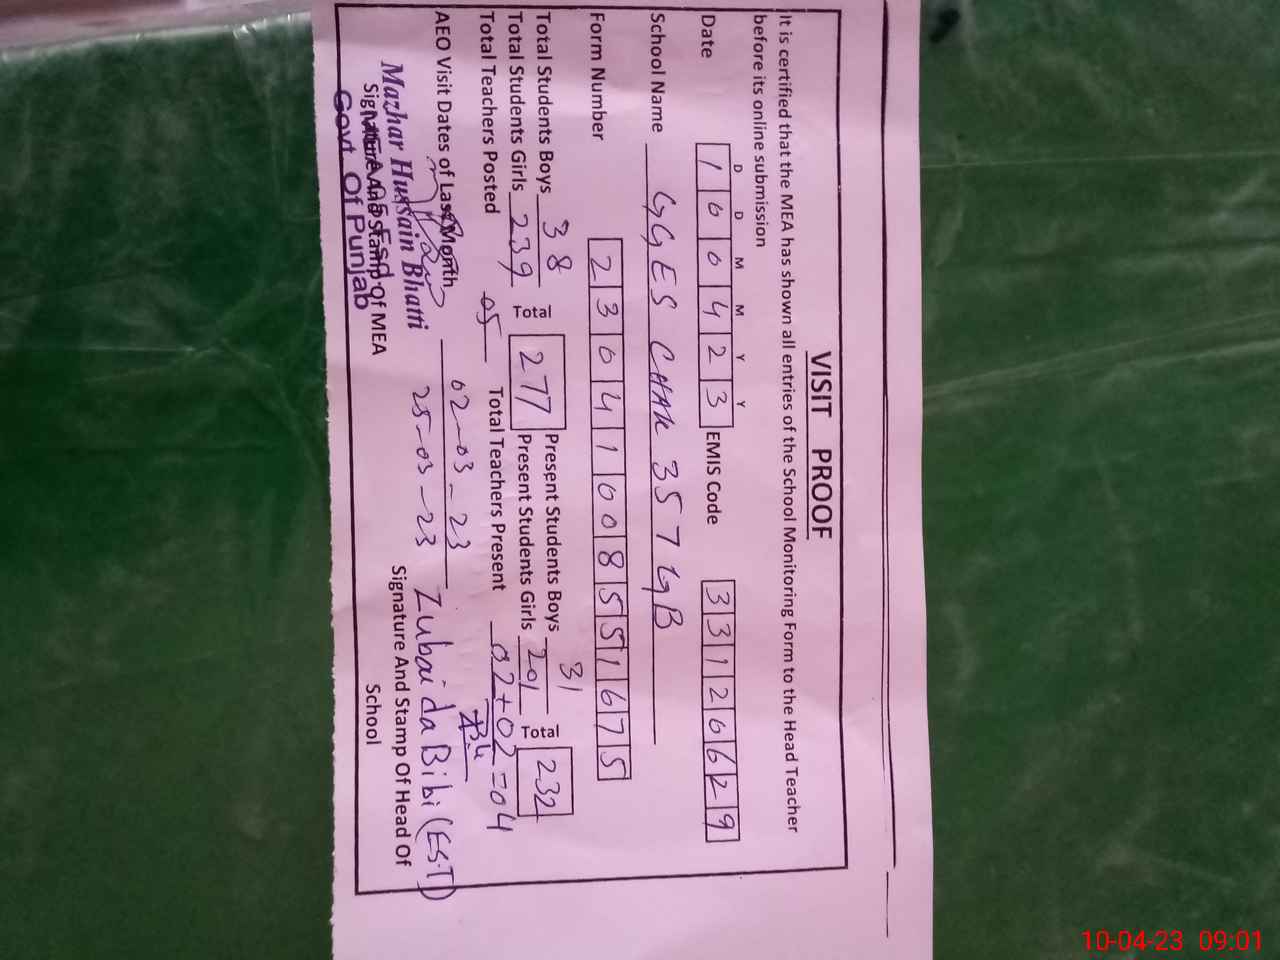 VISIT PROOF
It is certified that the MEA has shown all entries of the School Monitoring Form to the Head Teacher
before its online submission
D D M M Y Y
Date 1 0 0 4 2 3 EMIS Code 3 3 1 2 0 6 2 9
School Name GGES CHAK 357 GB
Form Number 2 3 0 4 1 0 0 8 5 5 1 6 7 5
Total Students Boys 38 Total 277 Present Students Boys 31 Total 232
Total Students Girls 239 Present Students Girls 201
Total Teachers Posted 05 Total Teachers Present 02+02=04
AEO Visit Dates of Last Month 02-03-23
25-03-23
Zubaida Bibi (EST)
Mazhar Hussain Bhatti
Signature And Stamp Of MEA
Govt. Of Punjab
Signature And Stamp Of Head Of
School
10-04-23 09:01